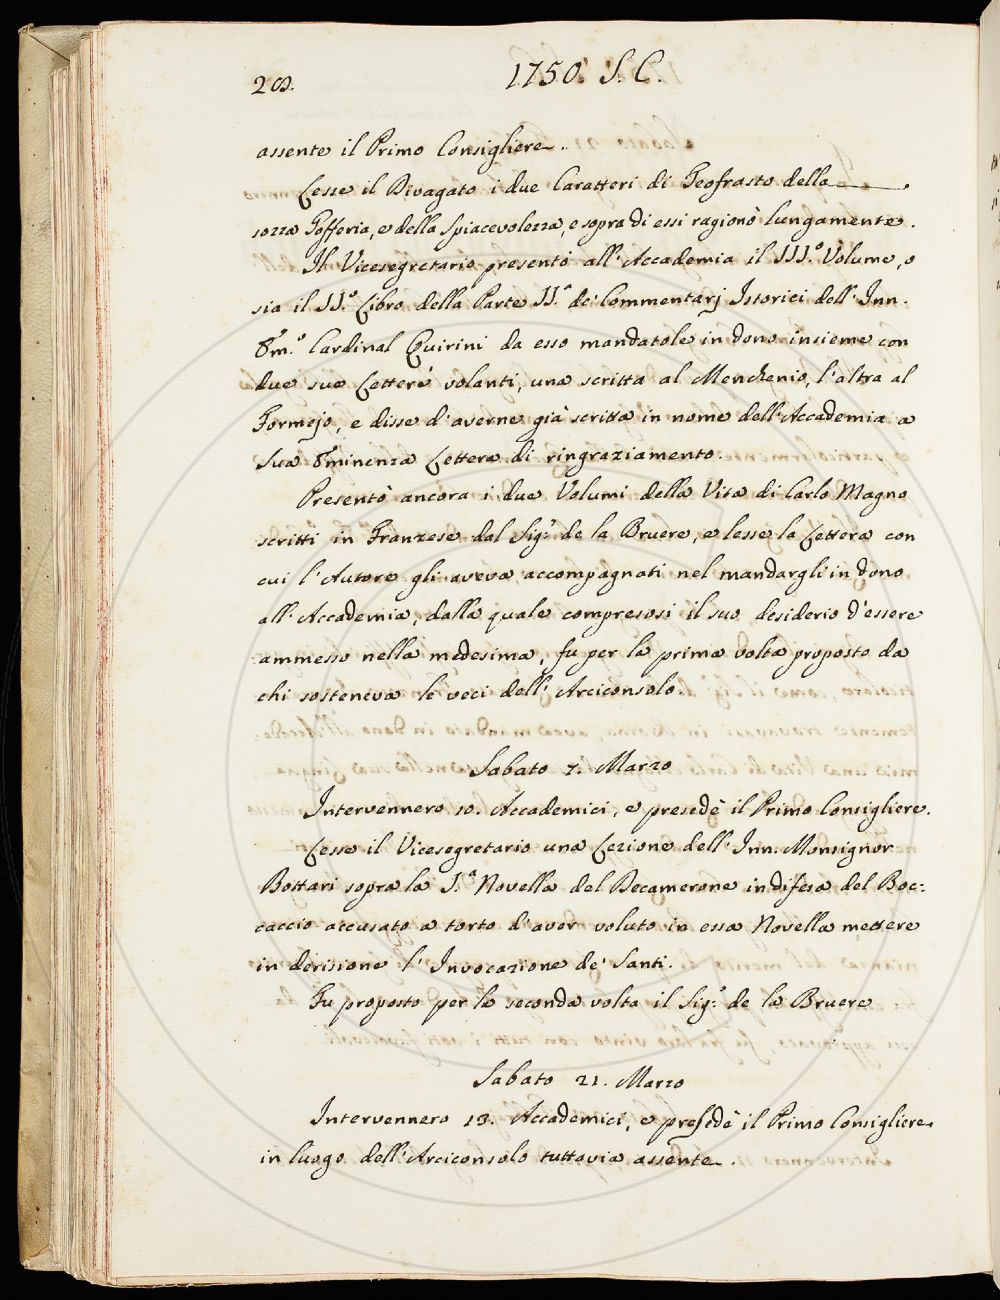 28.
1750. S. C.
assente il Primo Consigliere.
Lesse il Divagato i due Caratteri di Teofrasto della
sozza Gofferia, e della Spiacevolezza, e sopra di essi ragionò lungamente.
Il Vicesegretario presentò all'Accademia il III.º Volume, o
sia il II.º Libro della Parte II.ª de' Commentarj Istorici dell'Inn.
Em.º Cardinal Quirini da esso mandatole in dono insieme con
due sue Lettere volanti, una scritta al Menchenio, l'altra al
Formejo, e disse d'averne già scritta in nome dell'Accademia a
Sua Eminenza Lettera di ringraziamento.
Presentò ancora i due Volumi della Vita di Carlo Magno
scritti in Franzese dal Sig.r de la Bruere, e lesse la Lettera con
cui l'Autore gli aveva accompagnati nel mandargli in dono
all'Accademia, dalla quale compresosi il suo desiderio d'essere
ammesso nella medesima, fu per la prima volta proposto da
chi sosteneva le veci dell'Arciconsolo.
Sabato 7. Marzo
Intervennero 10. Accademici, e presedè il Primo Consigliere.
Lesse il Vicesegretario una Lezione dell'Inn. Monsignor
Bottari sopra la I.ª Novella del Decamerone in difesa del Boc:
caccio accusato a torto d'aver voluto in essa Novella mettere
in derisione l'Invocazione de' Santi.
Fu proposto per la seconda volta il Sig.r de la Bruere
Sabato 21. Marzo
Intervennero 13. Accademici, e presedè il Primo Consigliere
in luogo dell'Arciconsolo tuttavia assente.